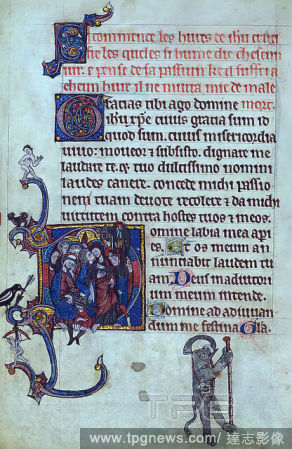 commence les hures de ihu crist
les queles si hume die chescun
iur. e pense de sa passiun ke il suffri a
cheun hure il ne murra mie de male
mort.
Gratias tibi ago domine
ihu xpe. cuius gratia sum id
quod sum. cuius misericordia
uiuo: moueor & subsisto. dignare me
laudare te. & tuo dulcissimo nomini
laudes canere. concede michi passio
nem tuam deuote recolere & da michi
uirtutem contra hostes tuos & meos.
Domine labia mea api
es. Et os meum an
nunciabit laudem tu
am. Deus in adiutori
um meum intende.
Domine ad adiuuan
dum me festina. Gla.
TPG
www.tpgnews.com / 達志影像